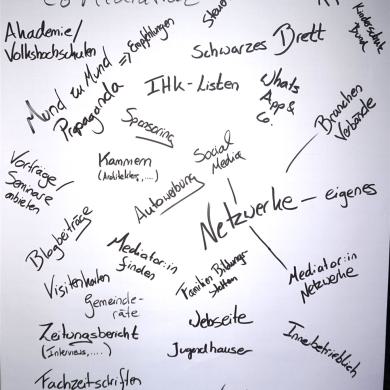 Akademie/
Volkshochschulen
Mund zu Mund
Propaganda
=> Empfehlungen
Steuer
Schwarzes Brett
Kinderschutz
Bund
IHK-Listen
Whats
App &
Co.
Branchen
Verbände
Sponsoring
Kammern
(Architekten,....)
Social
Media
Autowerbung
Vorträge/
Seminare
anbieten
Netzwerke - eigenes
Blogbeiträge
Mediator:in
finden
Familien Bildungs-
stätten
Mediator:in
Netzwerke
Visitenkarten
Gemeinde-
räte
Zeitungsbericht
(Interviews,....)
Webseite
Jugendhäuser
Innerbetrieblich
Fachzeitschriften